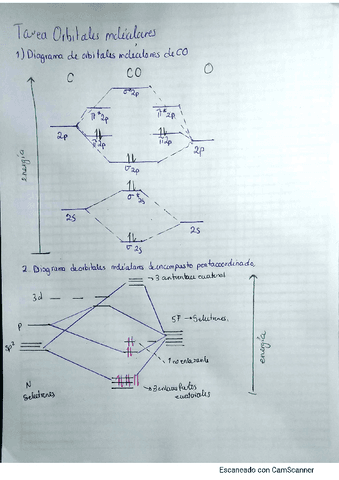 Tarea Orbitales moléculares
1) Diagrama de orbitales moléculares de CO
C CO O
energía
σ*2p
π*2p π*2p
2p
π2p π2p
2p
σ2p
σ*2s
2s 2s
σ2s
2. Diagrama de orbitales moléculares de un compuesto pentacoordinado
3 antienlace ecuatorial
3d
5F → 5 electrones.
p
sp²
energía
1 no enlazante
N
5 electrones
3 enlaces fuertes
ecuatoriales
Escaneado con CamScanner